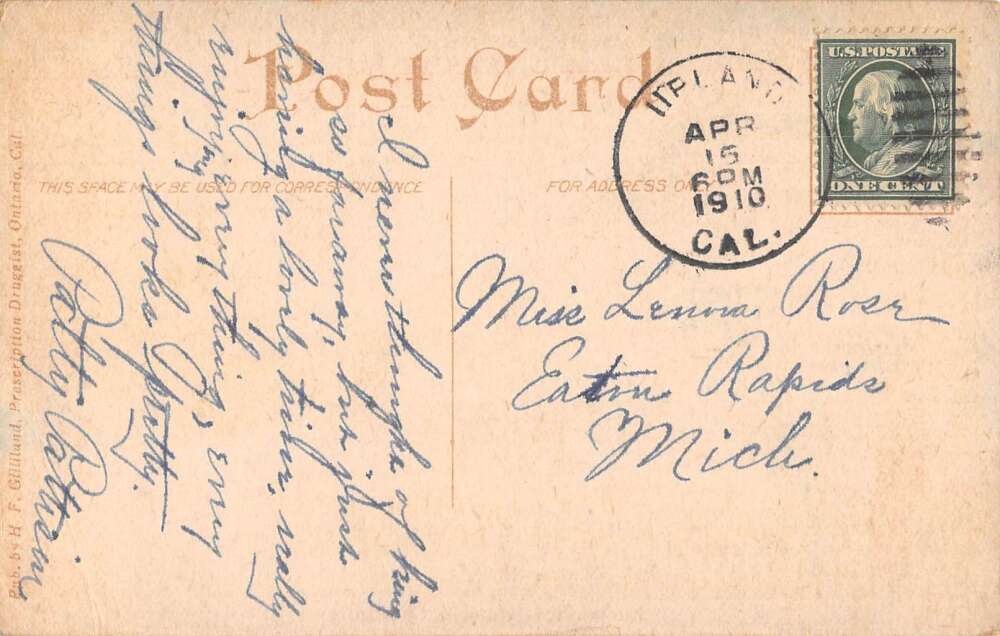 Post Card
THIS SPACE MAY BE USED FOR CORRESPONDENCE
FOR ADDRESS ON
UPLAND
APR
15
6 PM
1910
CAL.
U.S. POSTAGE
ONE CENT
Miss Lenora Rose
Eaton Rapids
Mich.
I never thought of being
so far away, but just
having a lovely time, really
enjoying everything, every
thing looks pretty.
Patty
Pub. by H. F. Gilliland, Prescription Druggist, Ontario, Cal